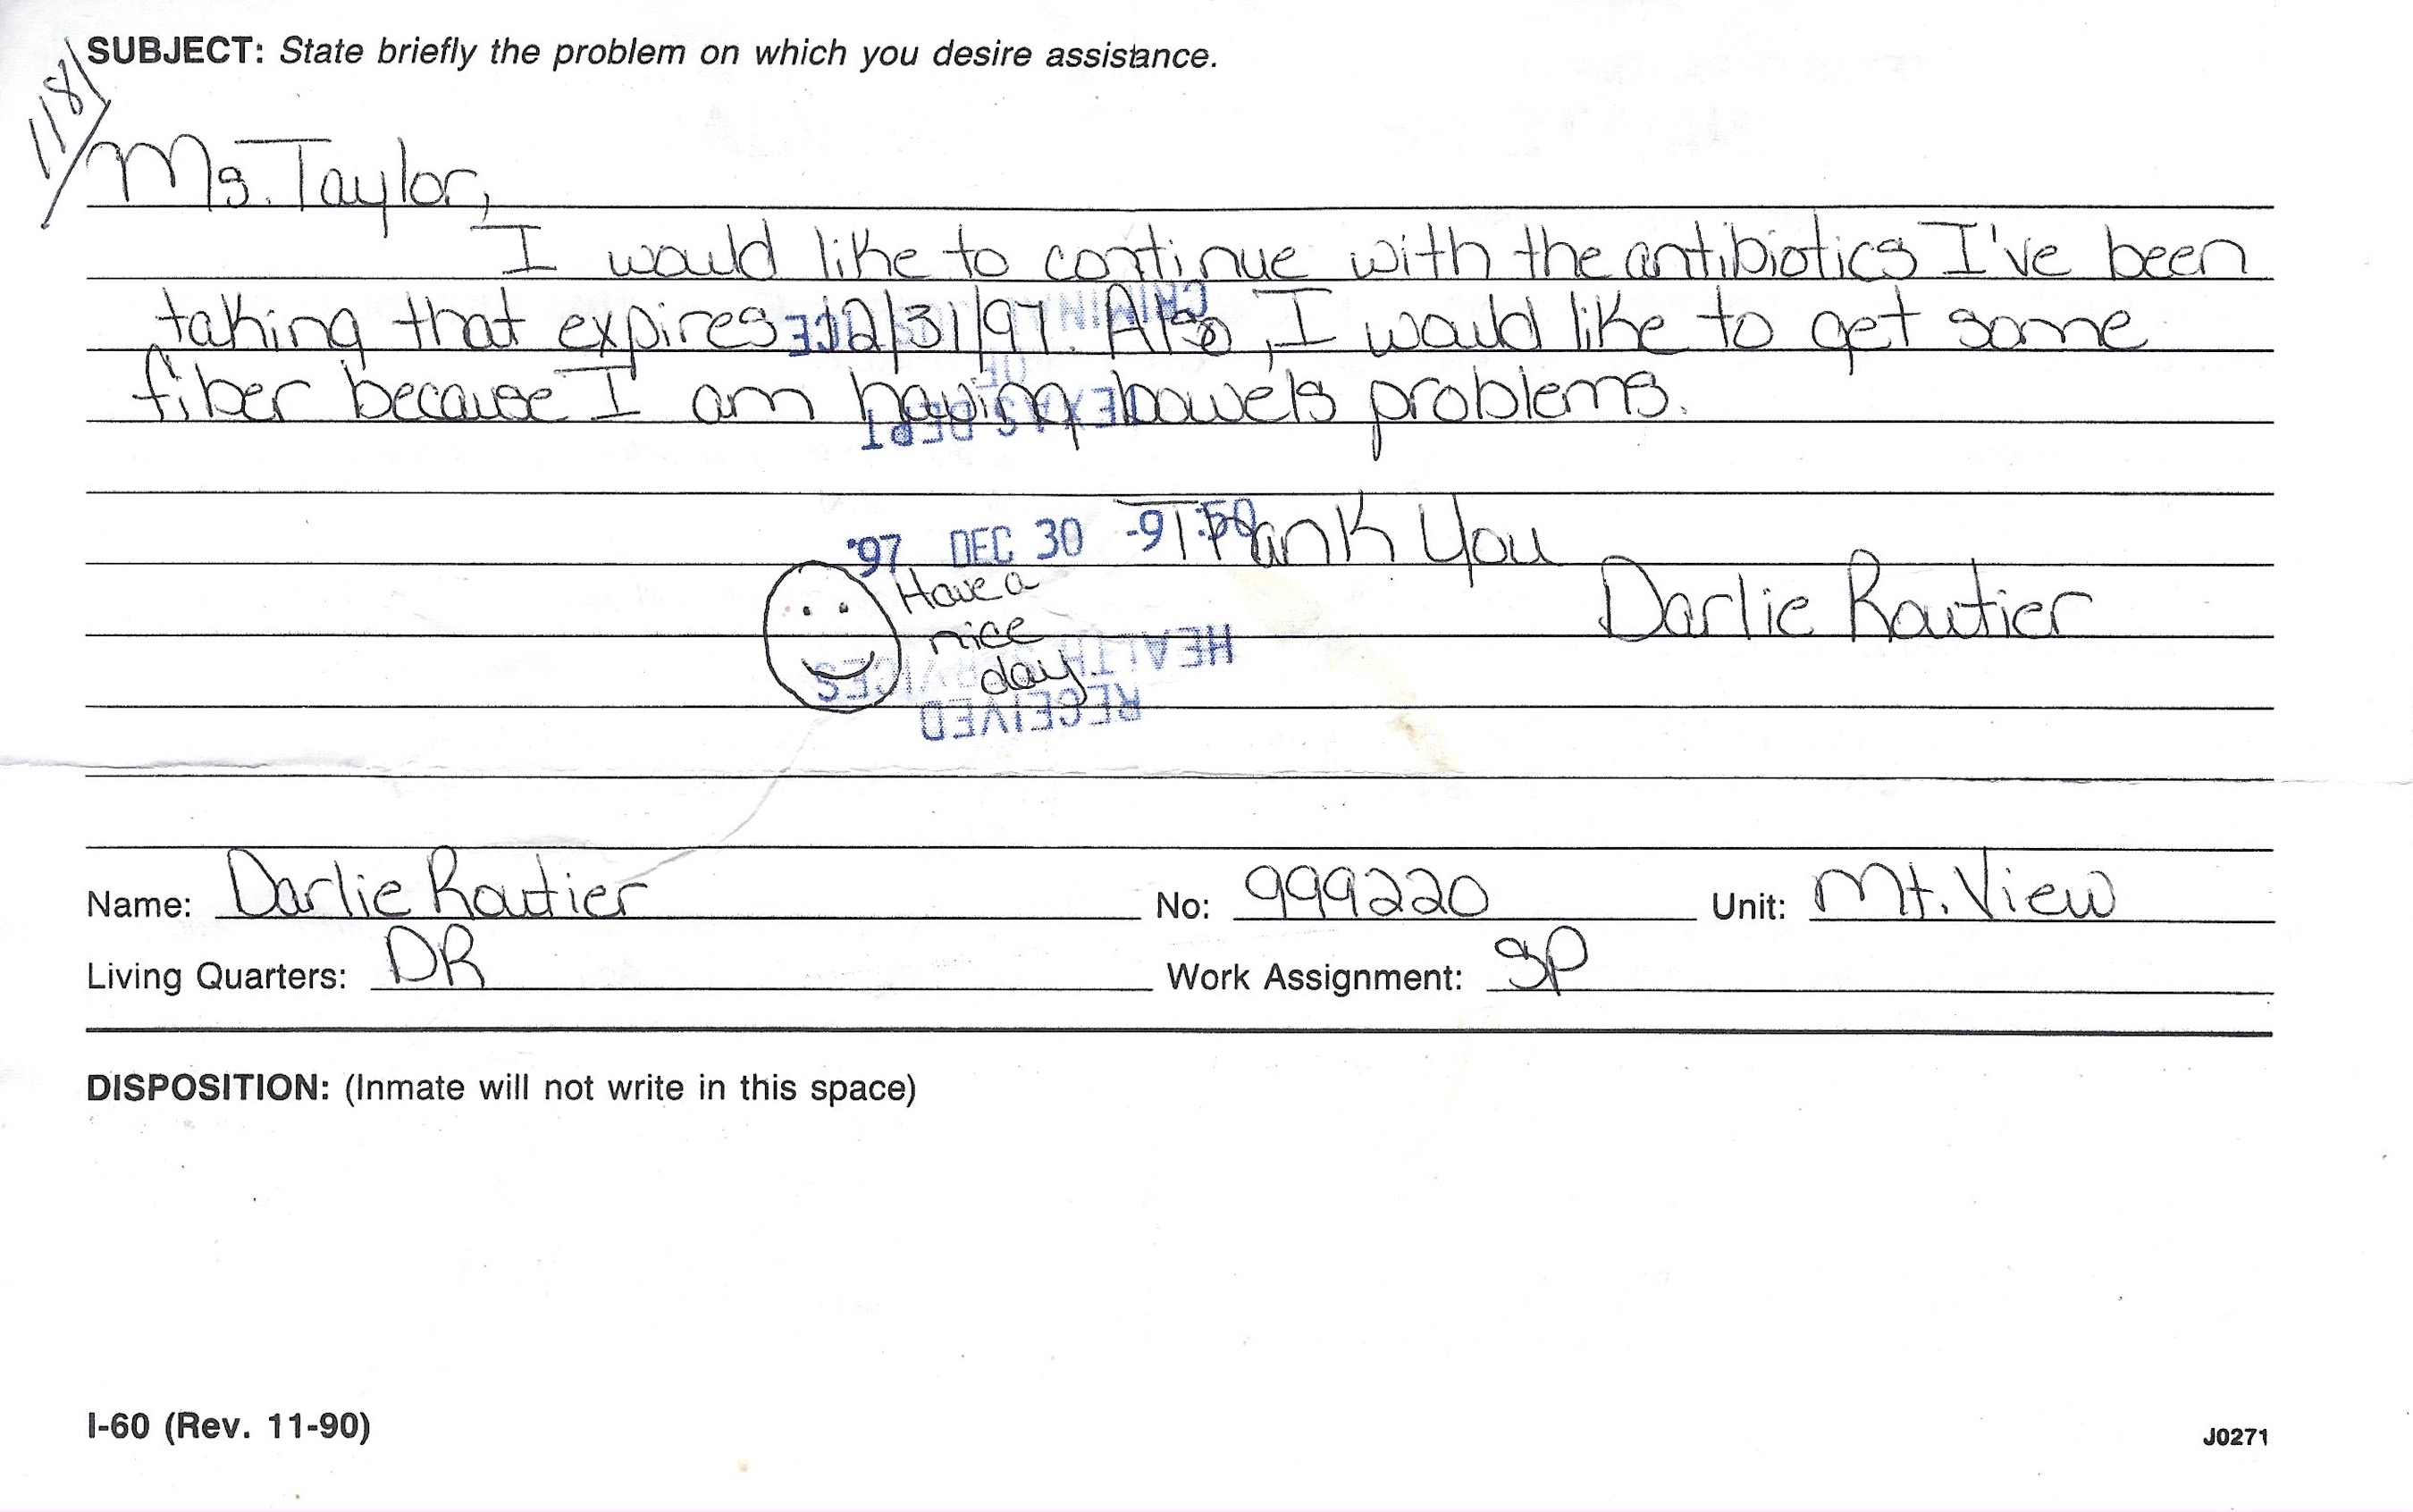 SUBJECT: State briefly the problem on which you desire assistance.
118
Ms. Taylor,
I would like to continue with the antibiotics I've been
taking that expires 12/31/97. Also, I would like to get some
fiber because I am having bowels problems.
TEXAS DEPT
OF
CRIMINAL JUSTICE
'97 DEC 30 -9 :50
Thank You
Have a
nice
day.
Darlie Routier
HEALTH SERVICES
RECEIVED
Name: Darlie Routier No: 999220 Unit: Mt. View
Living Quarters: DR Work Assignment: SP
DISPOSITION: (Inmate will not write in this space)
I-60 (Rev. 11-90)
J0271